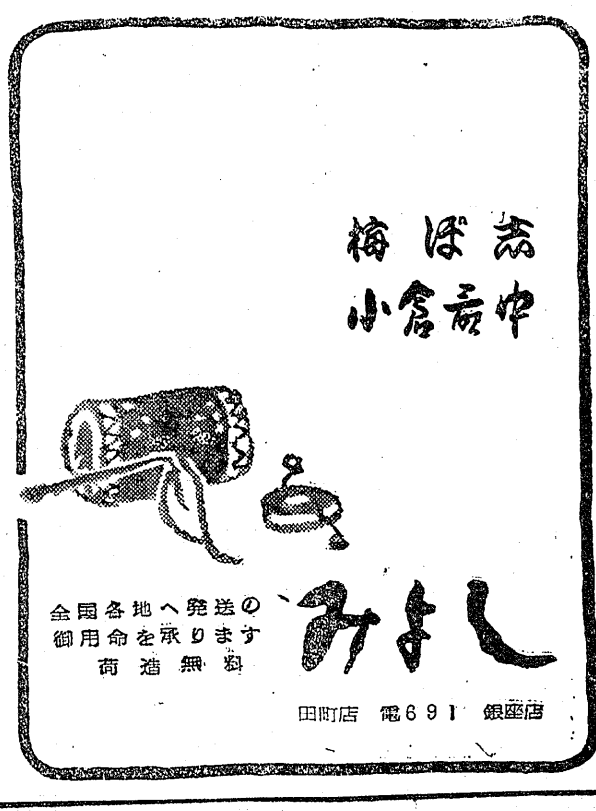 梅ぼ志
小倉最中
全国各地へ発送の
御用命を承ります
荷造無料
みよし
田町店 電691 銀座店